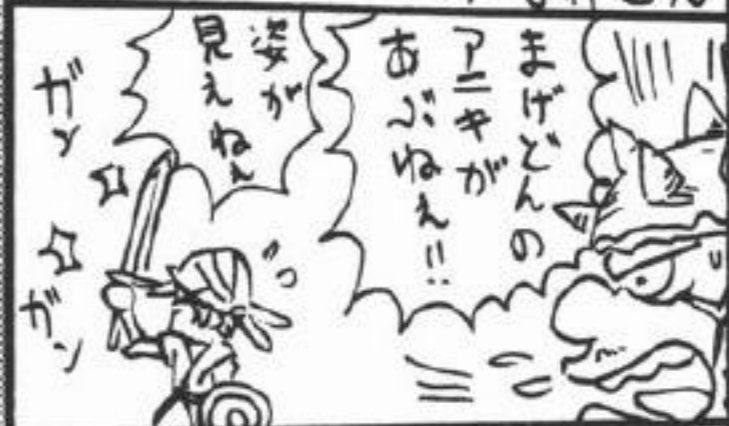 まげどんの
アニキが
あぶねぇ!!
姿が
見えねぇ
ガン
ガン